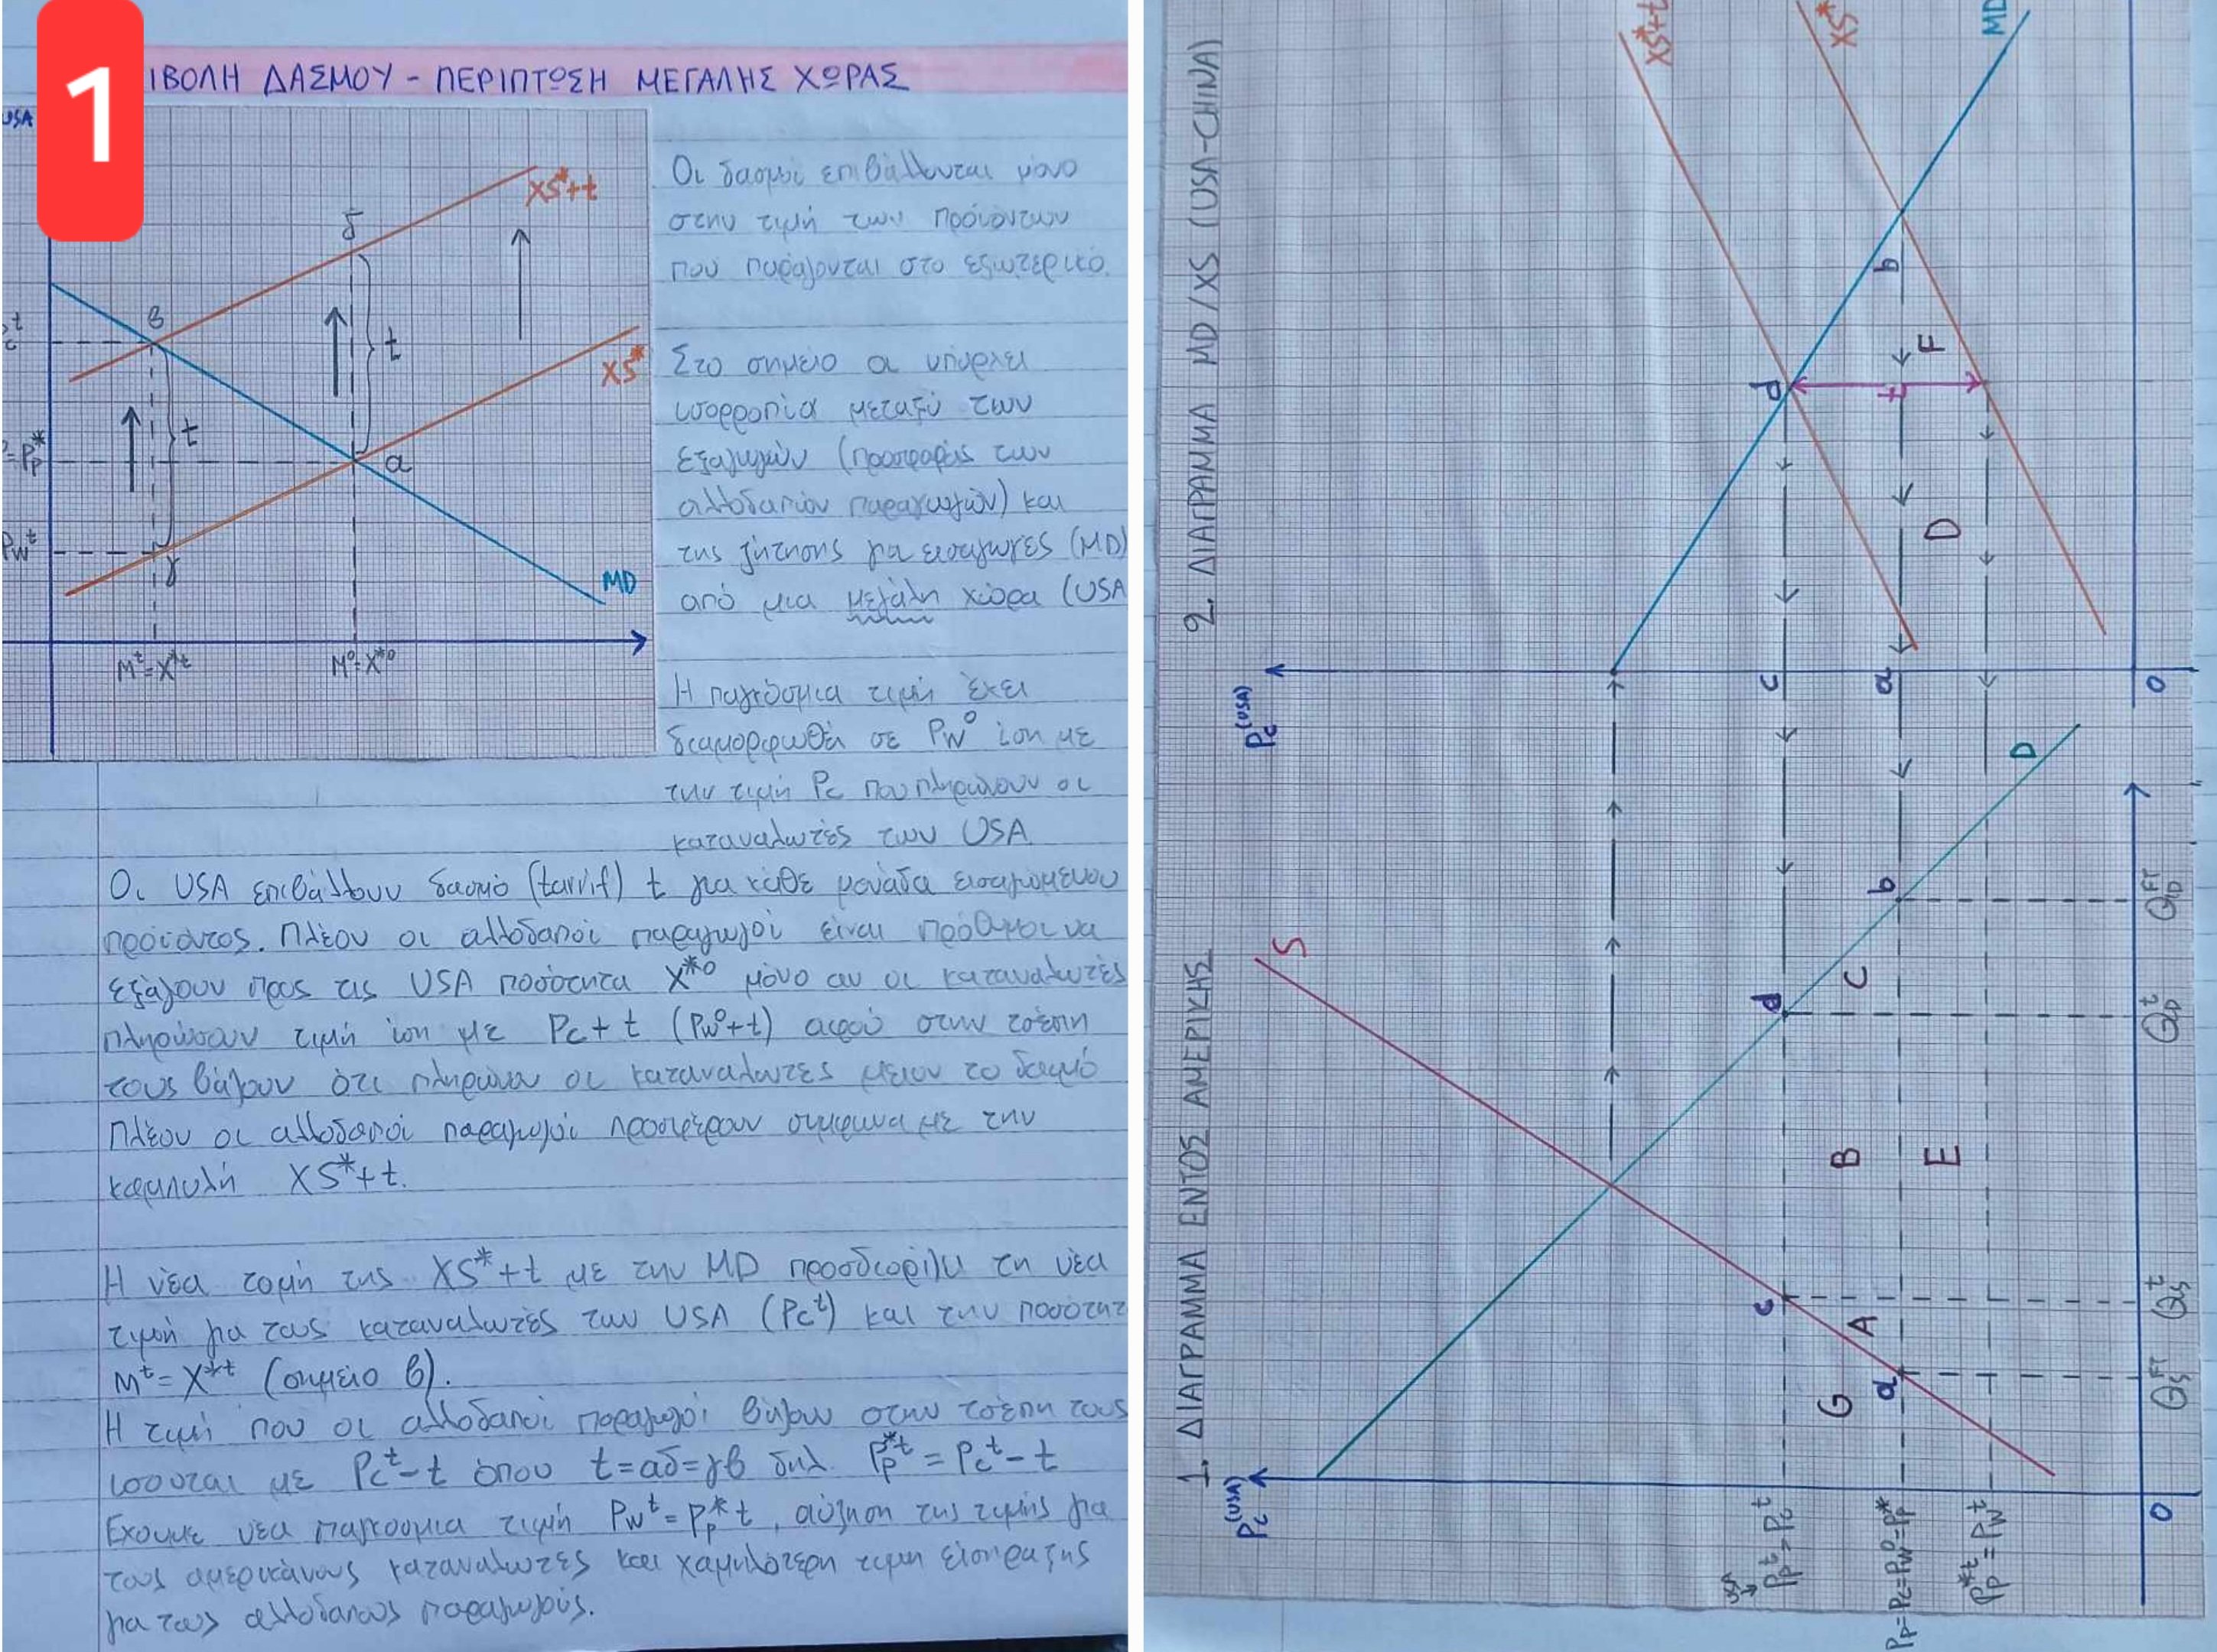 1
ΙΒΟΛΗ ΔΑΣΜΟΥ - ΠΕΡΙΠΤΩΣΗ ΜΕΓΑΛΗΣ ΧΩΡΑΣ
USA
XS*+t
δ
β
t
XS*
t
=Pp*
α
Pw^t
γ
MD
M^t=X*^t
M^0=X*^0
Οι δασμοί επιβάλλονται μόνο
στην τιμή των προϊόντων
που παράγονται στο εξωτερικό.
Στο σημείο α υπάρχει
ισορροπία μεταξύ των
εξαγωγών (προσφοράς των
αλλοδαπών παραγωγών) και
της ζήτησης για εισαγωγές (MD)
από μια μεγάλη χώρα (USA
Η παγκόσμια τιμή έχει
διαμορφωθεί σε Pw^0 ίση με
την τιμή Pc που πληρώνουν οι
καταναλωτές των USA
Οι USA επιβάλλουν δασμό (tarrif) t για κάθε μονάδα εισαγόμενου
προϊόντος. Πλέον οι αλλοδαποί παραγωγοί είναι πρόθυμοι να
εξάγουν προς τις USA ποσότητα X*^0 μόνο αν οι καταναλωτές
πληρώσουν τιμή ίση με Pc+t (Pw^0+t) αφού στην τσέπη
τους βάζουν ότι πληρώνουν οι καταναλωτές μείον το δασμό
Πλέον οι αλλοδαποί παραγωγοί προσφέρουν σύμφωνα με την
καμπυλή XS*+t.
Η νέα τομή της XS*+t με την MD προσδιορίζει τη νέα
τιμή για τους καταναλωτές των USA (Pc^t) και την ποσότητ
M^t=X*^t (σημείο β).
Η τιμή που οι αλλοδαποί παραγωγοί βάζουν στην τσέπη τους
ισούται με Pc^t-t όπου t=αδ=γβ δηλ. Pp*^t=Pc^t-t
Έχουμε νέα παγκόσμια τιμή Pw^t=Pp*t, αύξηση της τιμής για
τους αμερικάνους καταναλωτές και χαμηλότερη τιμή είσπραξης
για τους αλλοδαπούς παραγωγούς.
1. ΔΙΑΓΡΑΜΜΑ ΕΝΤΟΣ ΑΜΕΡΙΚΗΣ
Pc^(USA)
S
D
c
d
a
b
G
A
B
C
E
Pp^t=Pc^t
Pp=Pc=Pw^0=Pp*
Pp*^t=Pw^t
0
Qs^FT
Qs^t
QD^t
QD^FT
2. ΔΙΑΓΡΑΜΜΑ MD/XS (USA-CHINA)
Pc^(USA)
XS*+t
XS*
MD
c
d
a
b
t
D
F
0